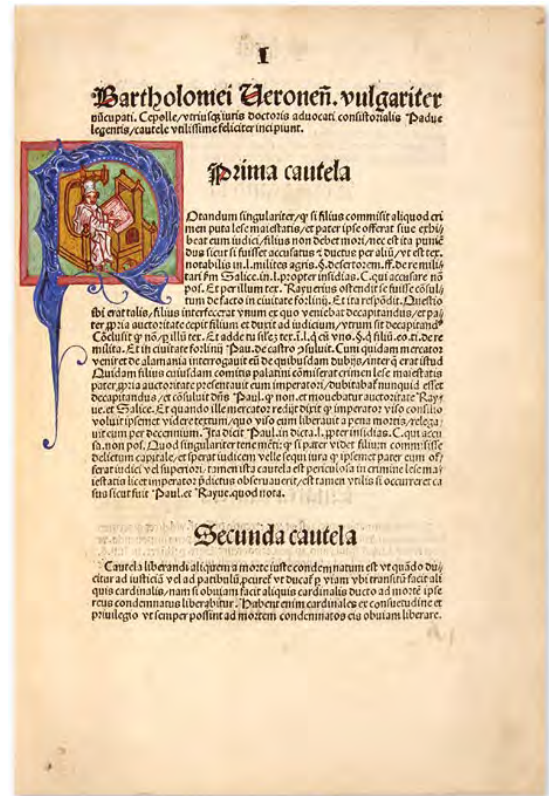 I
Bartholomei Veronen̄. vulgariter
nūcupati. Cepolle/vtriusqʒ iuris doctoris aduocati consistorialis Padue
legentis/cautele vtilissime feliciter incipiunt.
Prima cautela
Otandum singulariter/ꝙ si filius commisit aliquod cri
men puta lese maiestatis/et pater ipse offerat siue exhi/
beat eum iudici/filius non debet mori/nec est ita punie
dus sicut si fuisset accusatus ⁊ ductus per aliū/vt est tex.
notabilis in.l.milites agris.§.desertorem.ff.de re mili/
tari ꝑm Salice.in.l.propter insidias.C.qui accusare nō
pos. Et per illum tex. Rayuerius ostendit se fuisse cōsul/
tum de facto in ciuitate forliuij. Et ita respōdit. Questio
ibi erat talis/filius interfecerat vnum ex quo veniebat decapitandus/et pa/
ter ꝓpria auctoritate cepit filium et duxit ad iudicium/vtrum sit decapitandꝰ
Cōclusit ꝙ nō/ꝑ illū tex. Et adde tu silʒ tex.i.l.qd cū vno.§.qd filiū.eo.ti.de re
milita. Et in ciuitate forliuij Pau.de castro ↄsuluit. Cum quidam mercator
veniret de alamania interrogauit eū de quibusdam dubijs/inter q̄ erat istud
Quidam filius cuiusdam comitis palatini cōmiserat crimen lese maiestatis
pater ꝓpria auctoritate presentauit eum imperatori/dubitabaꝉ nunquid esset
decapitandus/et cōsuluit dn̄s Paul. ꝙ non.et mouebatur auctoritate Ray/
ue.et Salice. Et quando ille mercator redijt dixit ꝙ imperator viso consilio
voluit ipsemet videre textum/quo viso eum liberauit a pena mortis/relega/
uit eum per decennium. Ita dicit Paul.in dicta.l.ꝓpter insidias.C.qui accu
sa.non pos. Quod singulariter tene mēti: ꝙ si pater videt filium commisisse
delictum capitale/et sperat iudicem velle sequi iura ꝙ ipsemet pater eum of/
ferat iudici vel superiori/tamen ista cautela est periculosa in crimine lese ma/
iestatis licet imperator p̄dictus obseruauerit/est tamen vtilis si occurreret ca
sus sicut fuit Paul.et Rayue.quod nota.
Secunda cautela
Cautela liberandi aliquem a morte iuste condemnatum est vt quādo du/
citur ad iusticiā vel ad patibulū/ꝓcureꝉ vt ducaꝉ ꝑ viam vbi transitū facit ali
quis cardinalis/nam si obuiam facit aliquis cardinalis ducto ad mortē ipse
reus condemnatus liberabitur. Habent enim cardinales ex consuetudine et
priuilegio vt semper possint ad mortem condemnatos eis obuiam liberare.